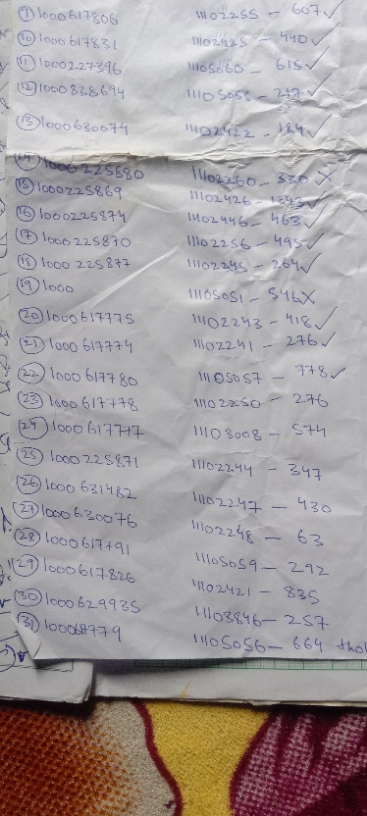 (9) 1000617806 11102255 - 607 ✓
(10) 1000617831 11102425 - 440 ✓
(11) 1000227396 11105060 - 615 ✓
(12) 1000838694 11105055 - 217 ✓
(13) 1000630074 11102422 - 184 ✓
(14) 1000225880 11102260 - 330 X
(15) 1000225869 11102426 - ✓
(16) 1000225874 11102446 - 463 ✓
(17) 1000225870 11102256 - 495 ✓
(18) 1000225877 11102245 - 264 ✓
(19) 1000 11105051 - 546 X
(20) 1000617775 11102243 - 418 ✓
(21) 1000617774 11102241 - 276 ✓
(22) 1000617780 11105057 - 778 ✓
(23) 1000617778 11102250 - 276
(24) 1000617777 11103008 - 574
(25) 1000225871 11102244 - 347
(26) 1000631482 11102247 - 430
(27) 1000630076 11102248 - 63
(28) 1000617791 11105059 - 292
(29) 1000617826 11102421 - 835
(30) 1000629935 11103846 - 257
(31) 100067779 11105056 - 664